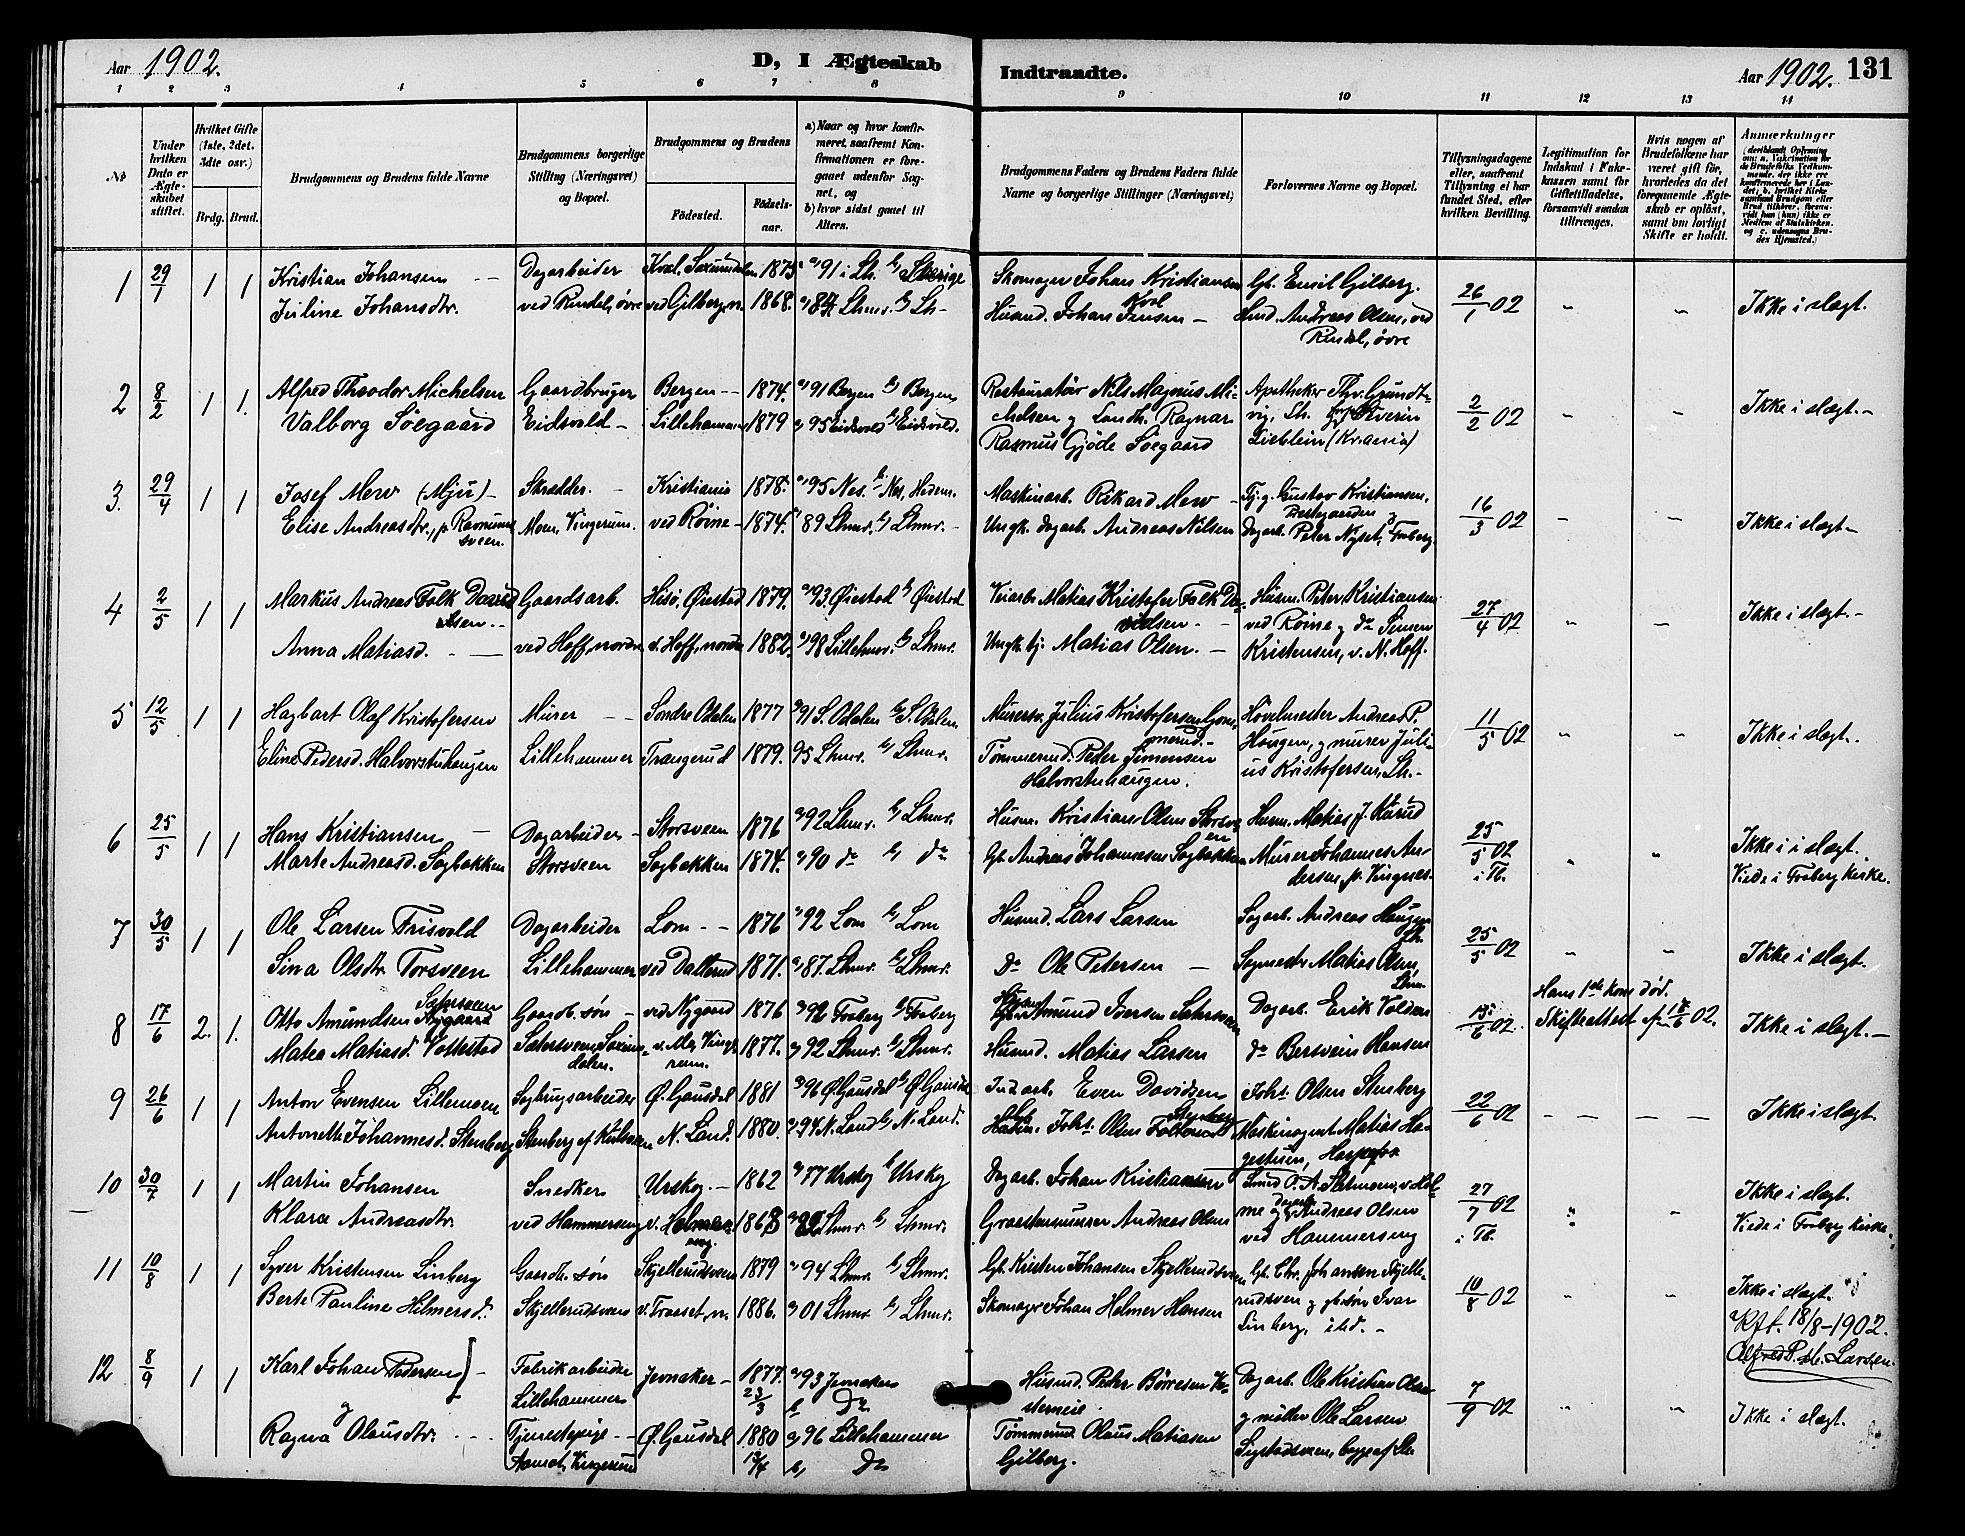 Aar 1902.
D, I Ægteskab
Indtraadte.
Aar 1902.
131
1 2 3 4 5 6 7 8 9 10 11 12 13 14
No
Under hvilken Dato er Ægteskabet stiftet.
Hvilket Gifte (1ste, 2det, 3dte osv.)
Brdg. Brud.
Brudgommens og Brudens fulde Navne
Brudgommens borgerlige Stilling (Næringsvei) og Bopæl.
Brudgommens og Brudens
Fødested.
Fødselsaar.
a) Naar og hvor konfirmeret, saafremt Konfirmationen er foregaaet udenfor Sognet, og
b) hvor sidst gaaet til Alters.
Brudgommens Faders og Brudens Faders fulde Navne og borgerlige Stillinger (Næringsvei)
Forlovernes Navne og Bopæl.
Tillysningsdagene eller, saafremt Tillysning ei har fundet Sted, efter hvilken Bevilling.
Legitimation for Indskud i Enkekassen samt for Giftetilladelse, forsaavidt saadan tiltrænges.
Hvis nogen af Brudefolkene har været gift før, hvorledes da det foregaaende Ægteskab er opløst, samt om lovligt Skifte er holdt.
Anmærkninger
1 29/1 1 1 Kristian Johansen Dagarbeider 1875 a) 91 i Lh. b) Sverige Skomager Johan Kristiansen Gb. Emil Gilberg. 26/1 02 Ikke i slægt.
Juline Johansdtr. ved Rindal, øvre ved Gilberg, n. 1868. a) 84 Lhmr. b) Lh- Husmd. Johan Jensen Smd. Andreas Olsen, ved
Rindal, øvre
2 8/2 1 1. Alfred Theodor Michelsen Gaardbruger Bergen 1874. a) 91 Bergen b) Bergen Restauratør Nils Magnus Mi- Apotheker Thv. Grundt- 2/2 02 Ikke i slægt.
Valborg Söegaard Eidsvold Lillehammer 1879 a) 95 Eidsvold b) Eidsvold. chelsen g Landh. Ragnar vig, Lh. Severin
Rasmus Gjöde Söegaard Lieblein (Krania)
3. 29/4 1 1 Josef Merv (Mju) Skrædder. Kristiania 1878. a) 95 Nes. b) Nes, Hedem. Maskinarb. Rikard Merv Gustav Kristiansen, 16/3 02 Ikke i slægt
Elise Andreasdtr., p. Rasmus- Vingerum. ved Röine 1874. a) 89 Lhmr. b) Lhmr. Ungk. dagarb. Andreas Nilsen
sveen. Dagarb. Peter Nyset, Faaberg.
4 2/5 1 1 Markus Andreas Falk David- Gaardsarb. Hisö, Öiestad 1879. a) 93. Öiestad b) Öiestad Veiarb. Matias Kristofer Falk Da- Husm. Peter Kristiansen 27/4 02 Ikke i slægt.
sen. vidsen. ved Röine g do Simen
Anna Matiasd. ved Hoff, nordre v. Hoff, nordre 1882. a) 98 Lillehmr. b) Lhmr. Ungk. Matias Olsen. Kristensen, v. N. Hoff.
5 12/5 1 1 Hagbart Olaf Kristofersen Murer Söndre Odalen 1877 a) 91 S. Odalen b) S. Odalen. Murersv. Julius Kristofersen Hövelmester Andreas P. 11/5 02 Ikke i slægt.
Eline Pedersd. Halvorstuhaugen Lillehammer Trangerud 1879. 95 Lhmr. b) Lhmr. Tømmermd. Peder Simensen Haugen, g murer Juli-
Halvorstuhaugen. us Kristofersen, Lh.
6 25/5 1 1 Hans Kristiansen Dagarbeider Storsveen 1876 a) 92 Lhmr. b) Lhmr. Husm. Kristian Olsen Storsve- Husm. Matias J. 25/5 02 Ikke i i slægt.
en
Marte Andreasd. Sagbakken Storsveen Sagbakken 1874. a) 90 do b) do Gb. Andreas Johannesen Sagbakken Murer Johannes An- i Fb. Viede i Faaberg kirke.
dersen, p. Vingnes.
7 30/5 1 1 Ole Larsen Frisvold Dagarbeider Lom 1876 a) 92 Lom b) Lom Husmd. Lars Larsen Sagarb. Andreas Haugen 25/5 02 Ikke i slægt.
Lh.
Sina Olsdtr. Torsveen Lillehammer ved Dallerud 1871. a) 87. Lhmr. b) Lhmr. do Ole Petersen Sagmester Matias Olsen,
Lhmr.
8 17/6 2. 1. Otto Amundsen Sætersveen Gaardb. sön ved Nygaard 1876 a) 92 Faaberg b) Faaberg Amund Iversen Dagarb. Erik Volden 15/6 02. Hans 1ste kone död.
Skifteattest af 17/6 02. Ikke i slægt.
Matea Matiasd. Vollestad 1877. a) 92 Lhmr. b) Lhmr. Husmd. Matias Larsen do Bersvein Hansen
dalen.
9 26/6 1 1 Anton Evensen Lillemoen Sagbrugsarbeider Ö. Gausdal 1881 a) 96 Ö. Gausdal b) Ö. Gausdal Ind arb. Even Davidsen Johs. Olsen Stenberg 22/6 02 Ikke i slægt.
Antonette Johannesd. Stenberg N. Land. 1880. a) 94 N. Land b) N. Land. Johs. Olsen Stenberg Maskinagent Matias Ha-
gestuen,
10 30/7 1 1 Martin Johansen Snedker Urskog. 1862 a) 77 Urskog b) Urskog Dagarb. Johan Kristiansen 27/7 02 Ikke i slægt.
Klara Andreasdtr. ved Hammerseng 1868 Lhmr. b) Lhmr. Graastensmurer Andreas Olsen Andreas Olsen i Fb. Viede i Faaberg kirke.
ved Hammerseng
11 10/8 1 1 Syver Kristensen Linberg Gaardb. sön Skjellerudsveen 1879 a) 94 Lhmr. b) Lhmr. Gb. Kristen Johansen Skjellerudsveen Gb. Chr. Johansen Skjelle- 10/8 02 Ikke i slægt.
Berte Pauline Helmersd. Skjellerudsveen v. Traaset, n. 1886. a) 01 Lhmr. b) Lhmr. Skomager Johan Helmer Hansen rudsveen g gb. sön Ivar
Linberg, ibd.
Kft. 18/8-1902.
Alfred P. M. Larsen.
12 8/9 1 1 Karl Johan Pedersen Fabrikarbeider Jevnaker 1877. a) 93 Jevnaker Husmd. Peder Börresen Ve- Dagarb. Ole Kristian Olsen 7/9 02 Ikke i slægt.
g Lillehammer 23/3 b) do stereie. g möller Ole Larsen
Ragna Olausdtr. Tjenestepige Ö. Gausdal 1880 a) 96 Lillehammer Tømmermd. Olaus Matiasen Sigstadsveen, begge af Lhr
Vingerum 19/4 b) do Gilberg.